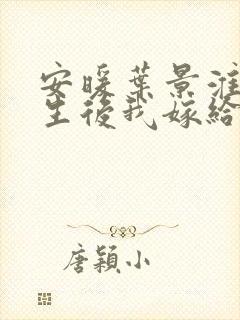 安暖葉景淮
生後我嫁給
唐穎小